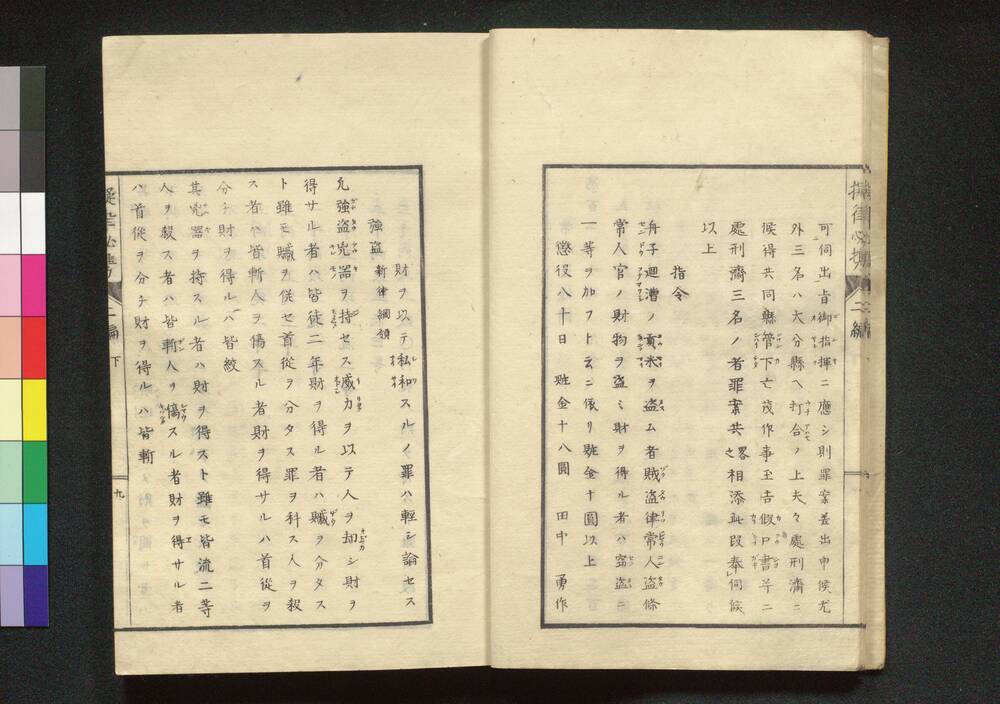 可伺出旨御指揮ニ應シ則罪案差出申候尤
外三名ハ大分縣ヘ打合ノ上夫々處刑濟ニ
候得共同縣管下亡茂作事至吉假口書并ニ
處刑濟三名ノ者罪案共畧之相添此段奉伺候
以上
指令
舟子廻漕ノ貢米ヲ盗ム者賊盗律常人盗條
常人官ノ財物ヲ盗ミ財ヲ得ル者ハ窃盗ニ
一等ヲ加フト云ニ依リ贓金十圓以上
懲役八十日 贓金十八圓 田中 勇作
擬律必携 二編
財ヲ以テ私和スルノ罪ハ輕シ論セス
強盗 新律綱領
凡強盗兇器ヲ持セス威力ヲ以テ人ヲ却シ財ヲ
得サル者ハ皆徒二年財ヲ得ル者ハ贓ヲ分タス
ト雖モ贓ヲ併セ首從ヲ分タス罪ヲ科ス人ヲ殺
ス者ハ皆斬人ヲ傷スル者財ヲ得サルハ首從ヲ
分チ財ヲ得ルハ皆絞
其兇器ヲ持スル者ハ財ヲ得スト雖モ皆流二等
人ヲ殺ス者ハ皆斬人ヲ傷スル者財ヲ得サル者
ハ首從ヲ分チ財ヲ得ルハ皆斬
二編 下
九